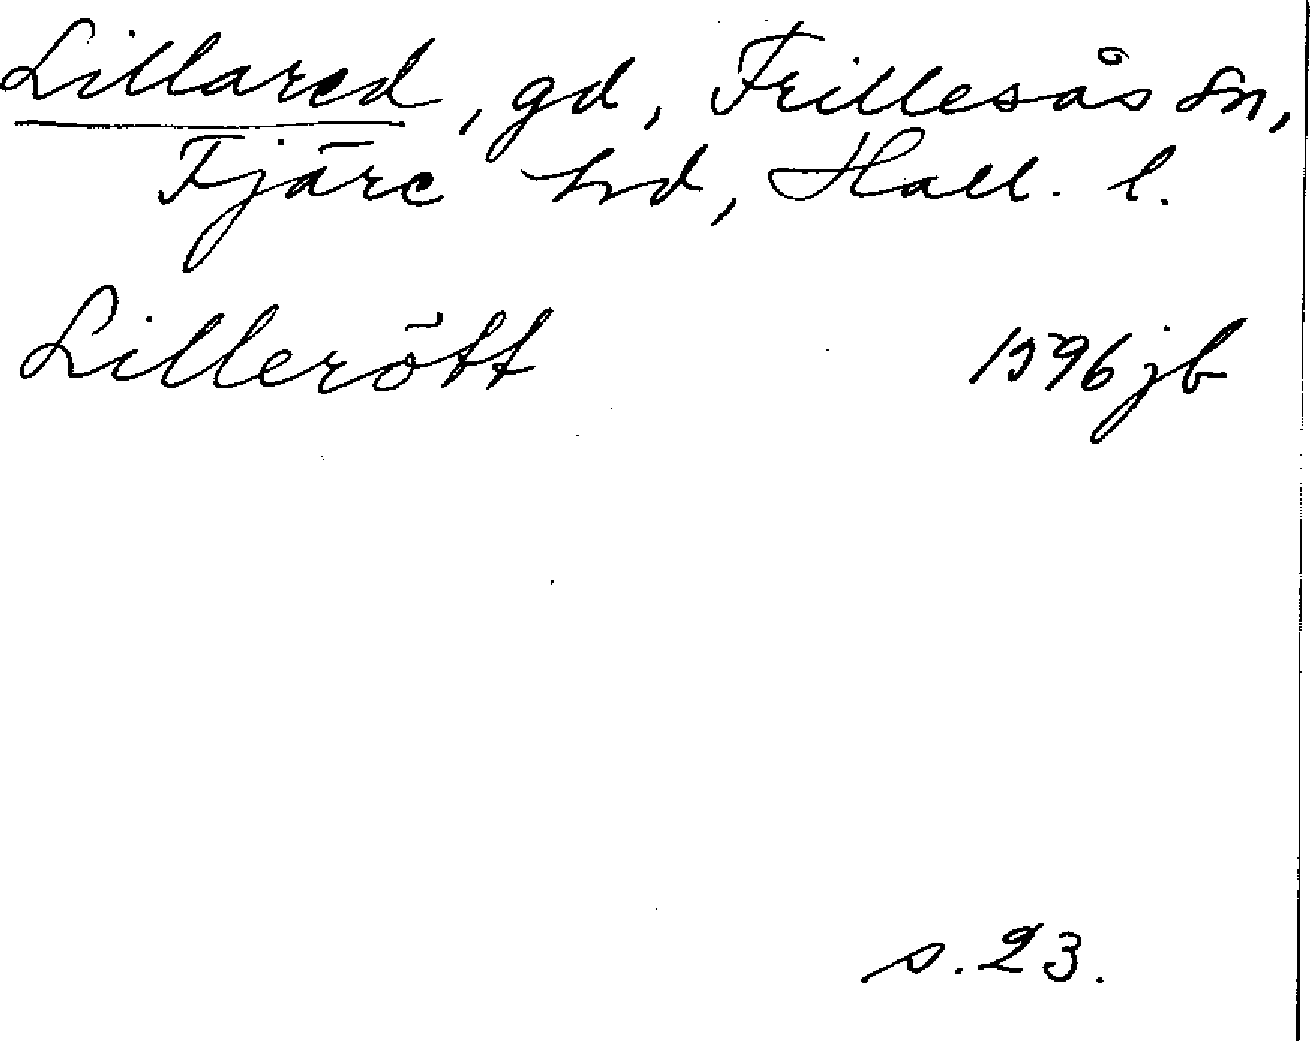 Lillared, gd, Frillesås sn,
Fjäre hd, Hall. l.
Lillerött 1596 jb
s. 23.